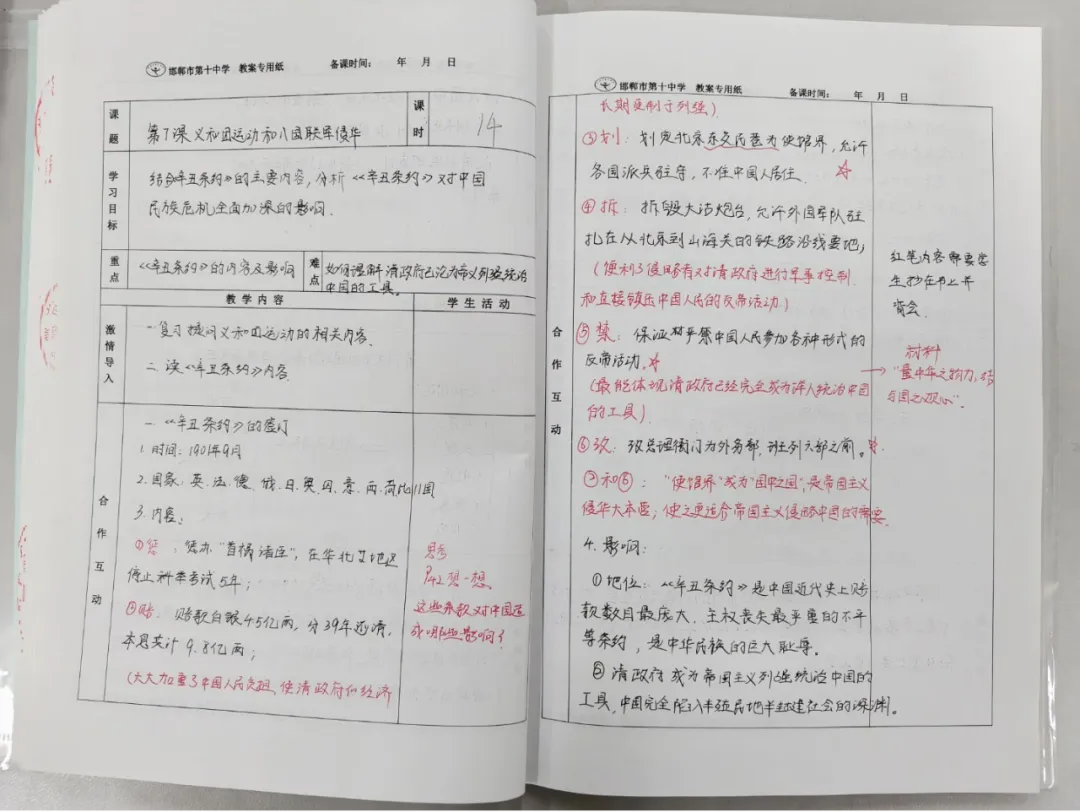 邯郸市第十中学 教案专用纸 备课时间： 年 月 日
课题
第7课 义和团运动和八国联军侵华
课时
14
学习目标
结合《辛丑条约》的主要内容,分析《辛丑条约》对中国
民族危机全面加深的影响.
重点
《辛丑条约》的内容及影响
难点
如何理解清政府已沦为帝义列强统治
中国的工具。
教 学 内 容
学 生 活 动
激情导入
一.复习提问义和团运动的相关内容.
二.读《辛丑条约》内容.
合作互动
一.《辛丑条约》的签订
1.时间：1901年9月
2.国家：英.法.德.俄.日.美.意.西.荷.比11国
3.内容：
①惩：惩办"首祸诸臣",在华北 地区
停止科举考试5年；
②赔：赔款白银4.5亿两,分39年还清,
本息共计9.8亿两；
(大大加重了中国人民负担,使清政府的经济
思考
P42想一想.
这些条款对中国造
成哪些影响？
邯郸市第十中学 教案专用纸 备课时间： 年 月 日
长期受制于列强)
③划：划定北京东交民巷为使馆界,允许
各国派兵驻守,不准中国人居住.☆
④拆：拆毁大沽炮台,允许外国军队驻
扎在从北京到山海关的铁路沿线要地；
(便利了侵略者对清政府进行军事控制
和直接镇压中国人民的反帝活动)
⑤禁：保证严禁中国人民参加各种形式的
反帝活动。☆
(最能体现清政府已经完全成为洋人统治中国
的工具)
⑥改：改总理衙门为外务部,班列六部之前。☆
③和⑥："使馆界"成为"国中之国",是帝国主义
侵华大本营；使之更适合帝国主义侵略中国的需要.
4.影响：
①地位：《辛丑条约》是中国近代史上赔
款数目最庞大、主权丧失最严重的不平
等条约,是中华民族的巨大耻辱。
②清政府成为帝国主义列强统治中国的
工具,中国完全陷入半殖民地半封建社会的深渊。
合作互动
红笔内容需要学
生抄在书上并
背会.
材料
→"量中华之物力,结
与国之欢心".